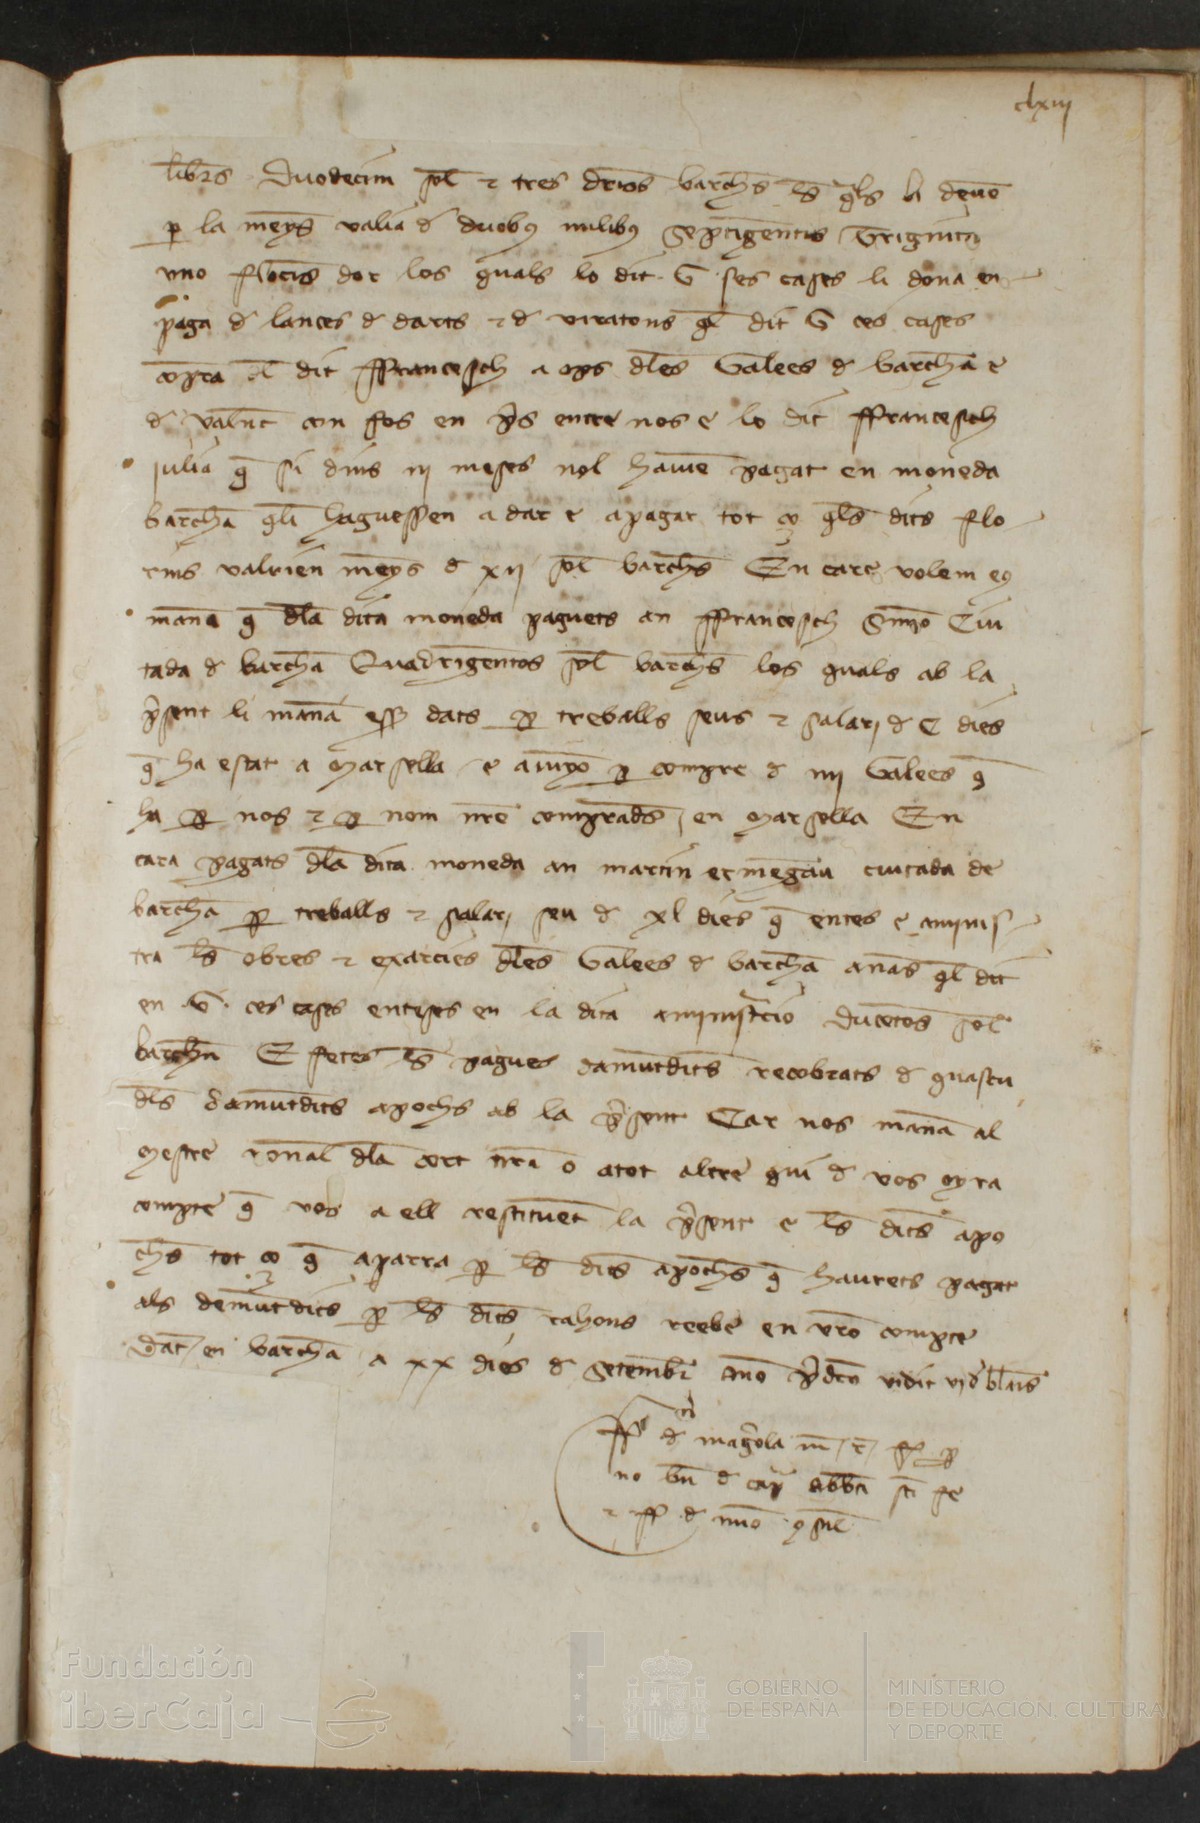 clxiij
libr̄s Duodecim sol̄ ⁊ tres drīos barchn̄s l̄s q̄ls li deuē
ꝑ la meyȳs valia d̄ duobꝰ milibꝰ Septīgentis Triginta
vno floc̄is dor los quals lo dit · G · ses cases li dona en
paga d̄ lances d̄ darts ⁊ d̄ viratons q̄l dit G ces cases
cōpra al̄ dit ffrancesch a ops dl̄es Galees d̄ barchn̄a e
d̄ valn̄c con fos en p̄s entre nos e lo dit ffrancesch
julia q̄ si dins iij meses nol hauiē pagat en moneda
barchn̄a q̄li haguessen a dar e apagar tot ço q̄ls dits flo
rins valrien meȳs d̄ xij sol̄ barchn̄s En care volem eꝰ
manā q̄ dl̄a dita moneda paguets an ffrancesch Simō Ciu
tada d̄ barchn̄a Quadrigentos sol̄ barchn̄s los quals ab la
p̄sent li manā eſſ dats ꝑ treballs seus ⁊ salarj d̄ C dies
q̄ ha estat a Marsella e auinyō ꝑ compre d̄ iiij Galees q̄
ha ꝑ nos ⁊ ꝑ nom nr̄e comprad̄s en Marsella En
cara pagats dl̄a dita moneda an martin ermēgau ciutada de
barchn̄a ꝑ treballs ⁊ salarj seu d̄ xl dies q̄ entes e aminis
tra l̄s obres ⁊ exarcies dl̄es Galees d̄ barchn̄a anās q̄l dit
en · G · ces cases entesес en la dita aministr̄cio Ducētos sol̄
barchn̄ E fetes l̄s pagues damūtdits recobrats d̄ quascu
dl̄s damūtdits apochs ab la p̄sent Car nos manā al
Mestre ronal̄ dl̄a cort nr̄a o atot altre qui d̄ vos oyra
compte q̄ vos a ell restituēt la p̄sent e l̄s dit̄s apo
ch̄s tot ço q̄ aparra ꝑ l̄s dit̄s apoch̄s q̄ haurets pagat
als demūtdits ꝑ l̄s dit̄s rahons reebe en vr̄o compte
Dat̄ en barchn̄a a xx dies d̄ Setembr̄ āno p̄dc̄o vidit
d̄ magr̄ola
no bn̄ d̄ abb̄a sc̄i fe
⁊ ff d̄
Fundación
iberCaja
GOBIERNO
DE ESPAÑA
MINISTERIO
DE EDUCACIÓN, CULTURA
Y DEPORTE